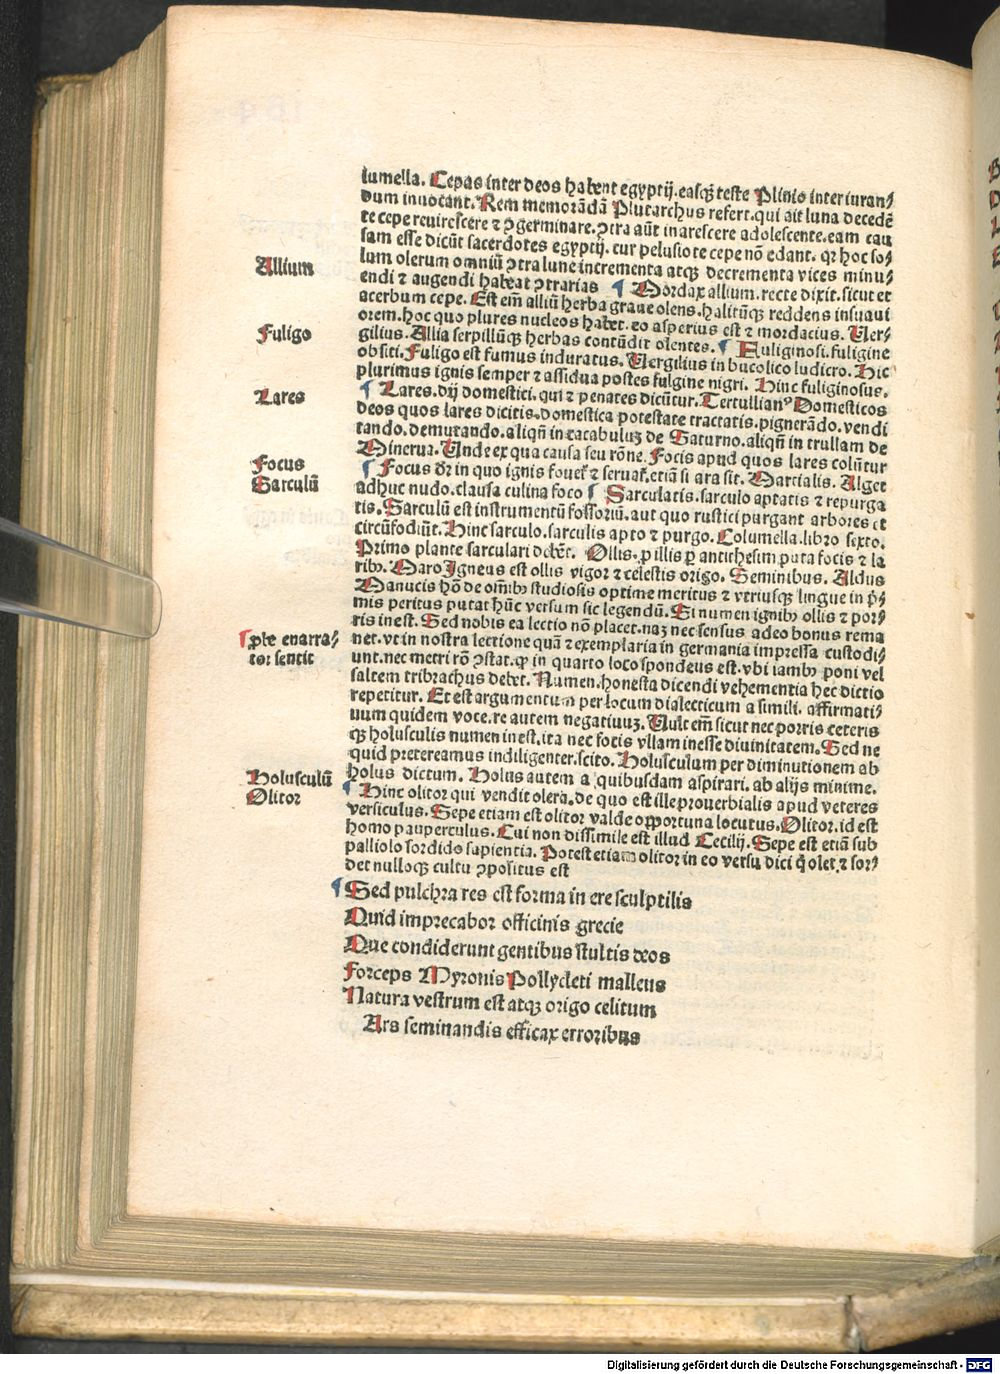 lumella. Cepas inter deos habent egyptij. easq̃ teste Plinio inter iuran⸗
dum inuocant. Rem memorãdã Plutarchus refert. qui ait luna decedẽ
te cepe reuirescere ⁊ ꝯgerminare. ꝯtra aũt inarescere adolescente. eam cau
sam esse dicũt sacerdotes egyptij. cur pelusiote cepe nõ edant. qꝛ hoc so⸗
Allium
lum olerum omniũ ꝯtra lune incrementa atqꝫ decrementa vices minu⸗
endi ⁊ augendi habeat ꝯtrarias ¶ Mordax allium. recte dixit. sicut et
acerbum cepe. Est em̃ alliũ herba graue olens. halitũqꝫ reddens insuaui
orem. hoc quo plures nucleos habet. eo asperius est ⁊ mordacius. Uer⸗
Fuligo
gilius. Allia serpillũqꝫ herbas contũdit olentes. ¶ Fuliginosi. fuligine
obsiti. Fuligo est fumus induratus. Uergilius in bucolico ludicro. Hic
plurimus ignis semper ⁊ assidua postes fulgine nigri. Hinc fuliginosus.
Lares
¶ Lares. dij domestici. qui ⁊ penates dicũtur. Tertullianꝰ Domesticos
deos quos lares dicitis. domestica potestate tractatis. pignerãdo. vendi
tando. demutando. aliqñ in cacabuluꝫ de Saturno. aliqñ in trullam de
Minerua. Unde ex qua causa seu rõne. Focis apud quos lares colũtur
Focus
¶ Focus dr̃ in quo ignis fouet̃ ⁊ seruat̃. etiã si ara sit. Marcialis. Alget
Sarculũ
adhuc nudo. clausa culina foco ¶ Sarculatis. sarculo aptatis ⁊ repurga
tis. Sarculũ est instrumentũ fossoriũ. aut quo rustici purgant arbores et
circũfodiũt. Hinc sarculo. sarculis apto ⁊ purgo. Columella. libro sexto.
Primo plante sarculari debẽt. Ollis. ꝓ illis ꝑ antithesim puta focis ⁊ la
ribꝫ. Maro Igneus est ollis vigor ⁊ celestis origo. Seminibus. Aldus
Manucis hõ de om̃ibꝫ studiosis optime meritus ⁊ vtriusqꝫ lingue in p̃⸗
mis peritus putat hũc versum sic legendũ. Et numen ignibꝫ ollis ⁊ por⸗
ris inest. Sed nobis ea lectio nõ placet. naꝫ nec sensus adeo bonus rema
¶ ꝓbe enarra⸗
net. vt in nostra lectione quã ⁊ exemplaria in germania impressa custodi⸗
tor sentit
unt. nec metri rõ ꝯstat. ꝙ in quarto loco spondeus est. vbi iambꝫ poni vel
saltem tribrachus debet. Numen. honesta dicendi vehementia hec dictio
repetitur. Et est argumentum per locum dialecticum a simili. affirmati⸗
uum quidem voce. re autem negatiuuꝫ. Uult em̃ sicut nec porris ceteris
qꝫ holusculis numen inest. ita nec focis vllam inesse diuinitatem. Sed ne
quid pretereamus indiligenter. scito. Holusculum per diminutionem ab
Holusculũ
holus dictum. Holus autem a quibusdam aspirari. ab alijs minime.
Olitor
¶ Hinc olitor qui vendit olera. de quo est ille prouerbialis apud veteres
versiculus. Sepe etiam est olitor valde opportuna locutus. Olitor. id est
homo pauperculus. Cui non dissimile est illud Cecilij. Sepe est etiã sub
palliolo sordido sapientia. Potest etiam olitor in eo versu dici q̃ olet. ⁊ sor⸗
det nulloqꝫ cultu ꝯpositus est
¶ Sed pulchra res est forma in ere sculptilis
Quid imprecabor officinis grecie
Que condiderunt gentibus stultis deos
Forceps Myronis Pollycleti malleus
Natura vestrum est atqꝫ origo celitum
Ars seminandis efficax erroribus
Digitalisierung gefördert durch die Deutsche Forschungsgemeinschaft - DFG